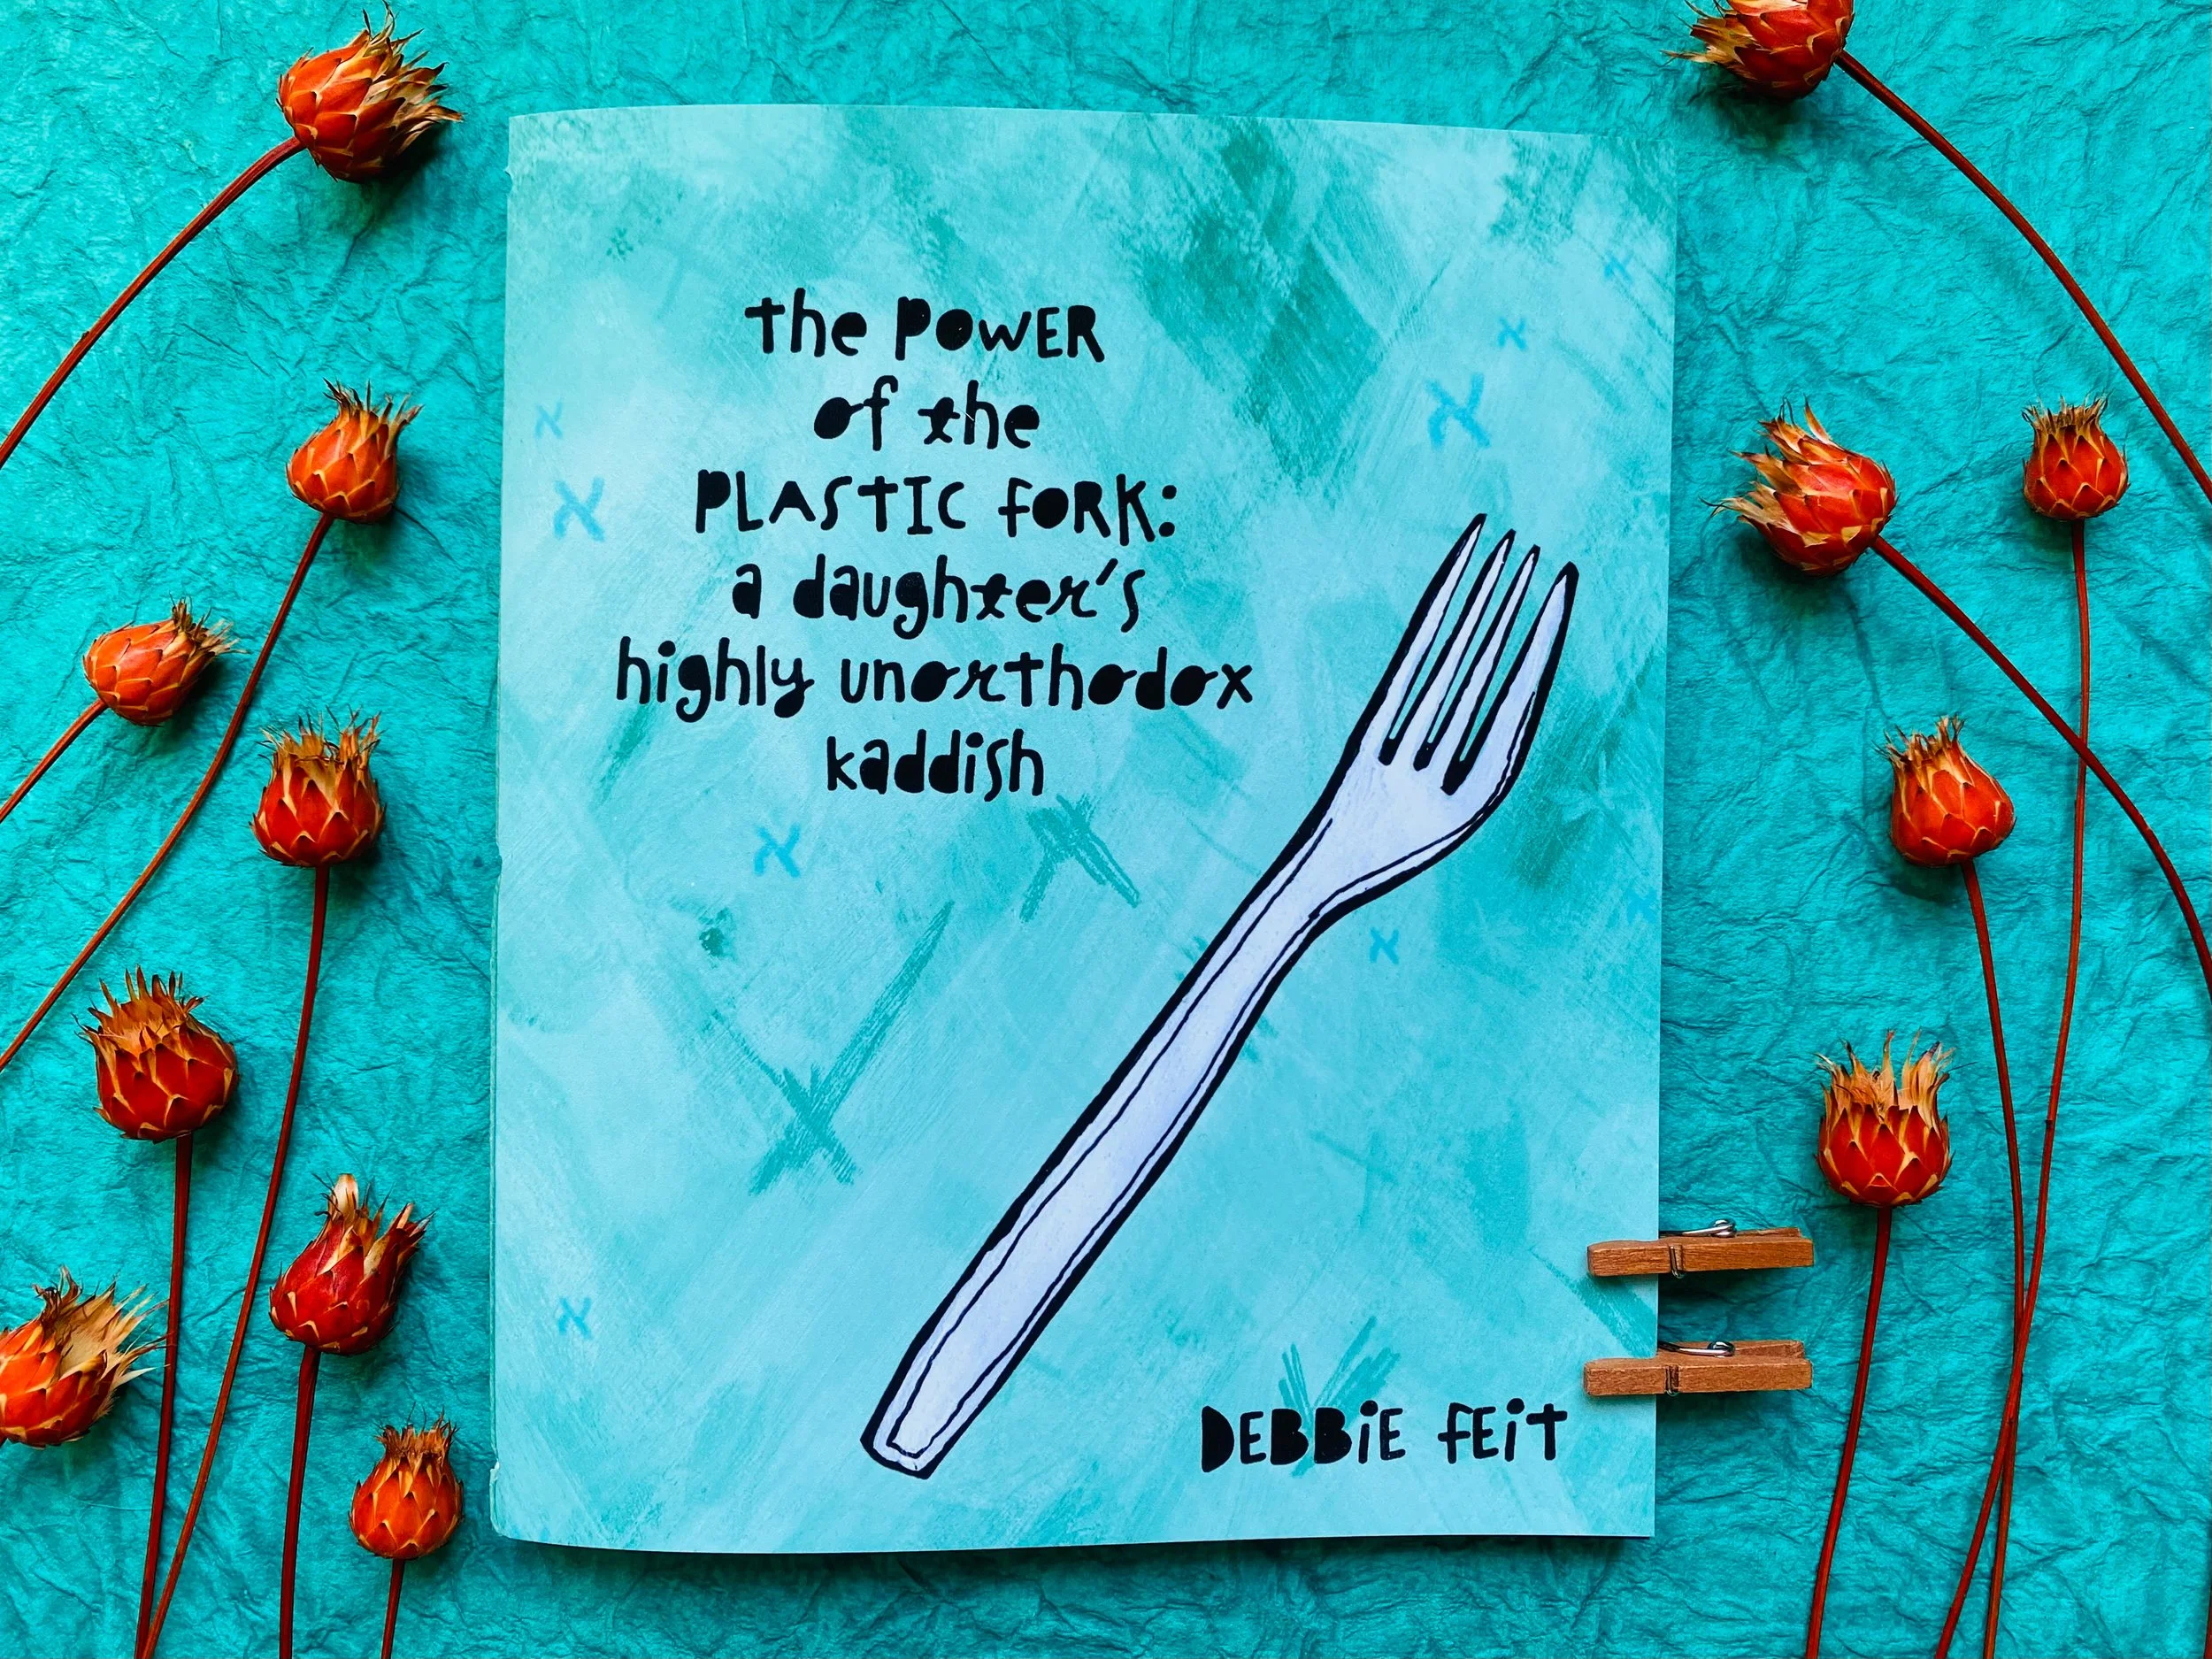 the POWER
of the
PLASTIC FORK:
a daughter's
highly unorthodox
kaddish
DEBBiE FEiT